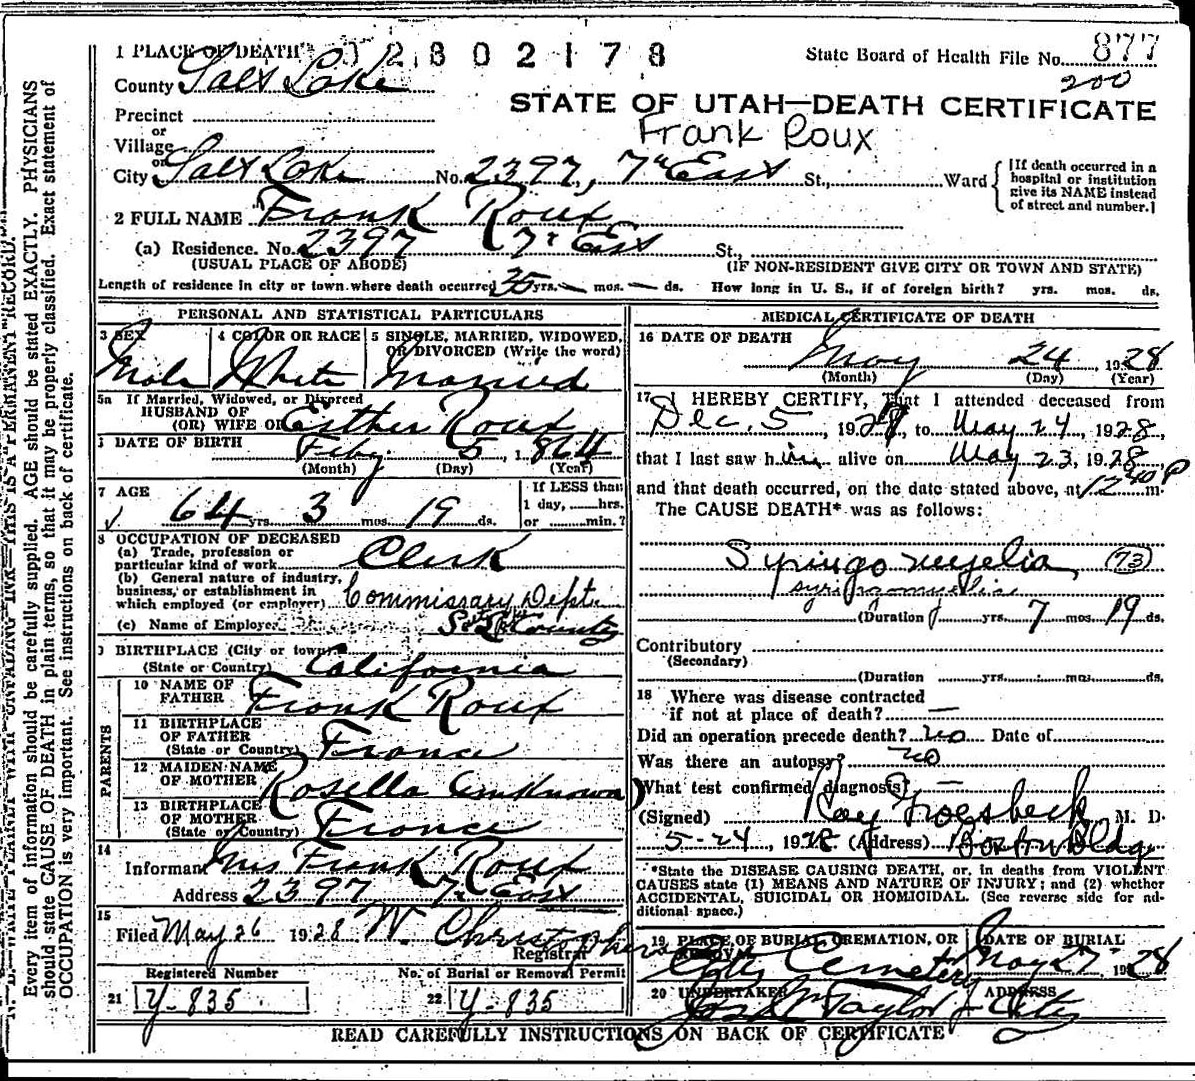 1 PLACE OF DEATH 2802178
State Board of Health File No. 877
County Salt Lake 200
STATE OF UTAH—DEATH CERTIFICATE
Precinct
or
Village
Frank Roux
or
City Salt Lake No. 2397, 7th East St., Ward
{If death occurred in a
hospital or institution
give its NAME instead
of street and number.}
2 FULL NAME Frank Roux
(a) Residence. No. 2397 7th East St.,
(USUAL PLACE OF ABODE) (IF NON-RESIDENT GIVE CITY OR TOWN AND STATE)
Length of residence in city or town where death occurred 35 yrs. — mos. — ds. How long in U. S., if of foreign birth? yrs. mos. ds.
PERSONAL AND STATISTICAL PARTICULARS
3 SEX Male
4 COLOR OR RACE White
5 SINGLE, MARRIED, WIDOWED,
OR DIVORCED (Write the word)
Married
5a If Married, Widowed, or Divorced
HUSBAND OF
(OR) WIFE OF Esther Roux
6 DATE OF BIRTH Feby. 5, 1864
(Month) (Day) (Year)
7 AGE
64 yrs. 3 mos. 19 ds.
If LESS than
1 day, hrs.
or min.?
8 OCCUPATION OF DECEASED
(a) Trade, profession or
particular kind of work Clerk
(b) General nature of industry,
business, or establishment in
which employed (or employer) Commissary Dept.
(c) Name of Employer County
9 BIRTHPLACE (City or town)
(State or Country) California
PARENTS
10 NAME OF
FATHER Frank Roux
11 BIRTHPLACE
OF FATHER
(State or Country) France
12 MAIDEN NAME
OF MOTHER Rosella Unknown
13 BIRTHPLACE
OF MOTHER
(State or Country) France
14
Informant Mrs Frank Roux
Address 2397 7th East
15
Filed May 26 1928 W. Christophers
Registrar
Registered Number
21 Y-835
No. of Burial or Removal Permit
22 Y-835
MEDICAL CERTIFICATE OF DEATH
16 DATE OF DEATH
May 24 1928
(Month) (Day) (Year)
17 I HEREBY CERTIFY, That I attended deceased from
Dec. 5, 1927, to May 24, 1928,
that I last saw him alive on May 23, 1928
and that death occurred, on the date stated above, at 12 40 P m.
The CAUSE DEATH* was as follows:
Syringo myelia (73)
syringomyelia
(Duration yrs. 7 mos. 19 ds.
Contributory
(Secondary)
(Duration yrs. mos. ds.
18 Where was disease contracted
if not at place of death? —
Did an operation precede death? no Date of
Was there an autopsy? no
What test confirmed diagnosis? —
(Signed) Roy Groesbeck M. D.
5-24, 1928 (Address) Boston Bldg
*State the DISEASE CAUSING DEATH, or, in deaths from VIOLENT
CAUSES state (1) MEANS AND NATURE OF INJURY; and (2) whether
ACCIDENTAL, SUICIDAL OR HOMICIDAL. (See reverse side for ad-
ditional space.)
19 PLACE OF BURIAL, CREMATION, OR
REMOVAL
City Cemetery
DATE OF BURIAL
May 27 1928
20 UNDERTAKER
Taylor
ADDRESS
City
READ CAREFULLY INSTRUCTIONS ON BACK OF CERTIFICATE
Every item of information should be carefully supplied. AGE should be stated EXACTLY. PHYSICIANS
should state CAUSE OF DEATH in plain terms, so that it may be properly classified. Exact statement of
OCCUPATION is very important. See instructions on back of certificate.